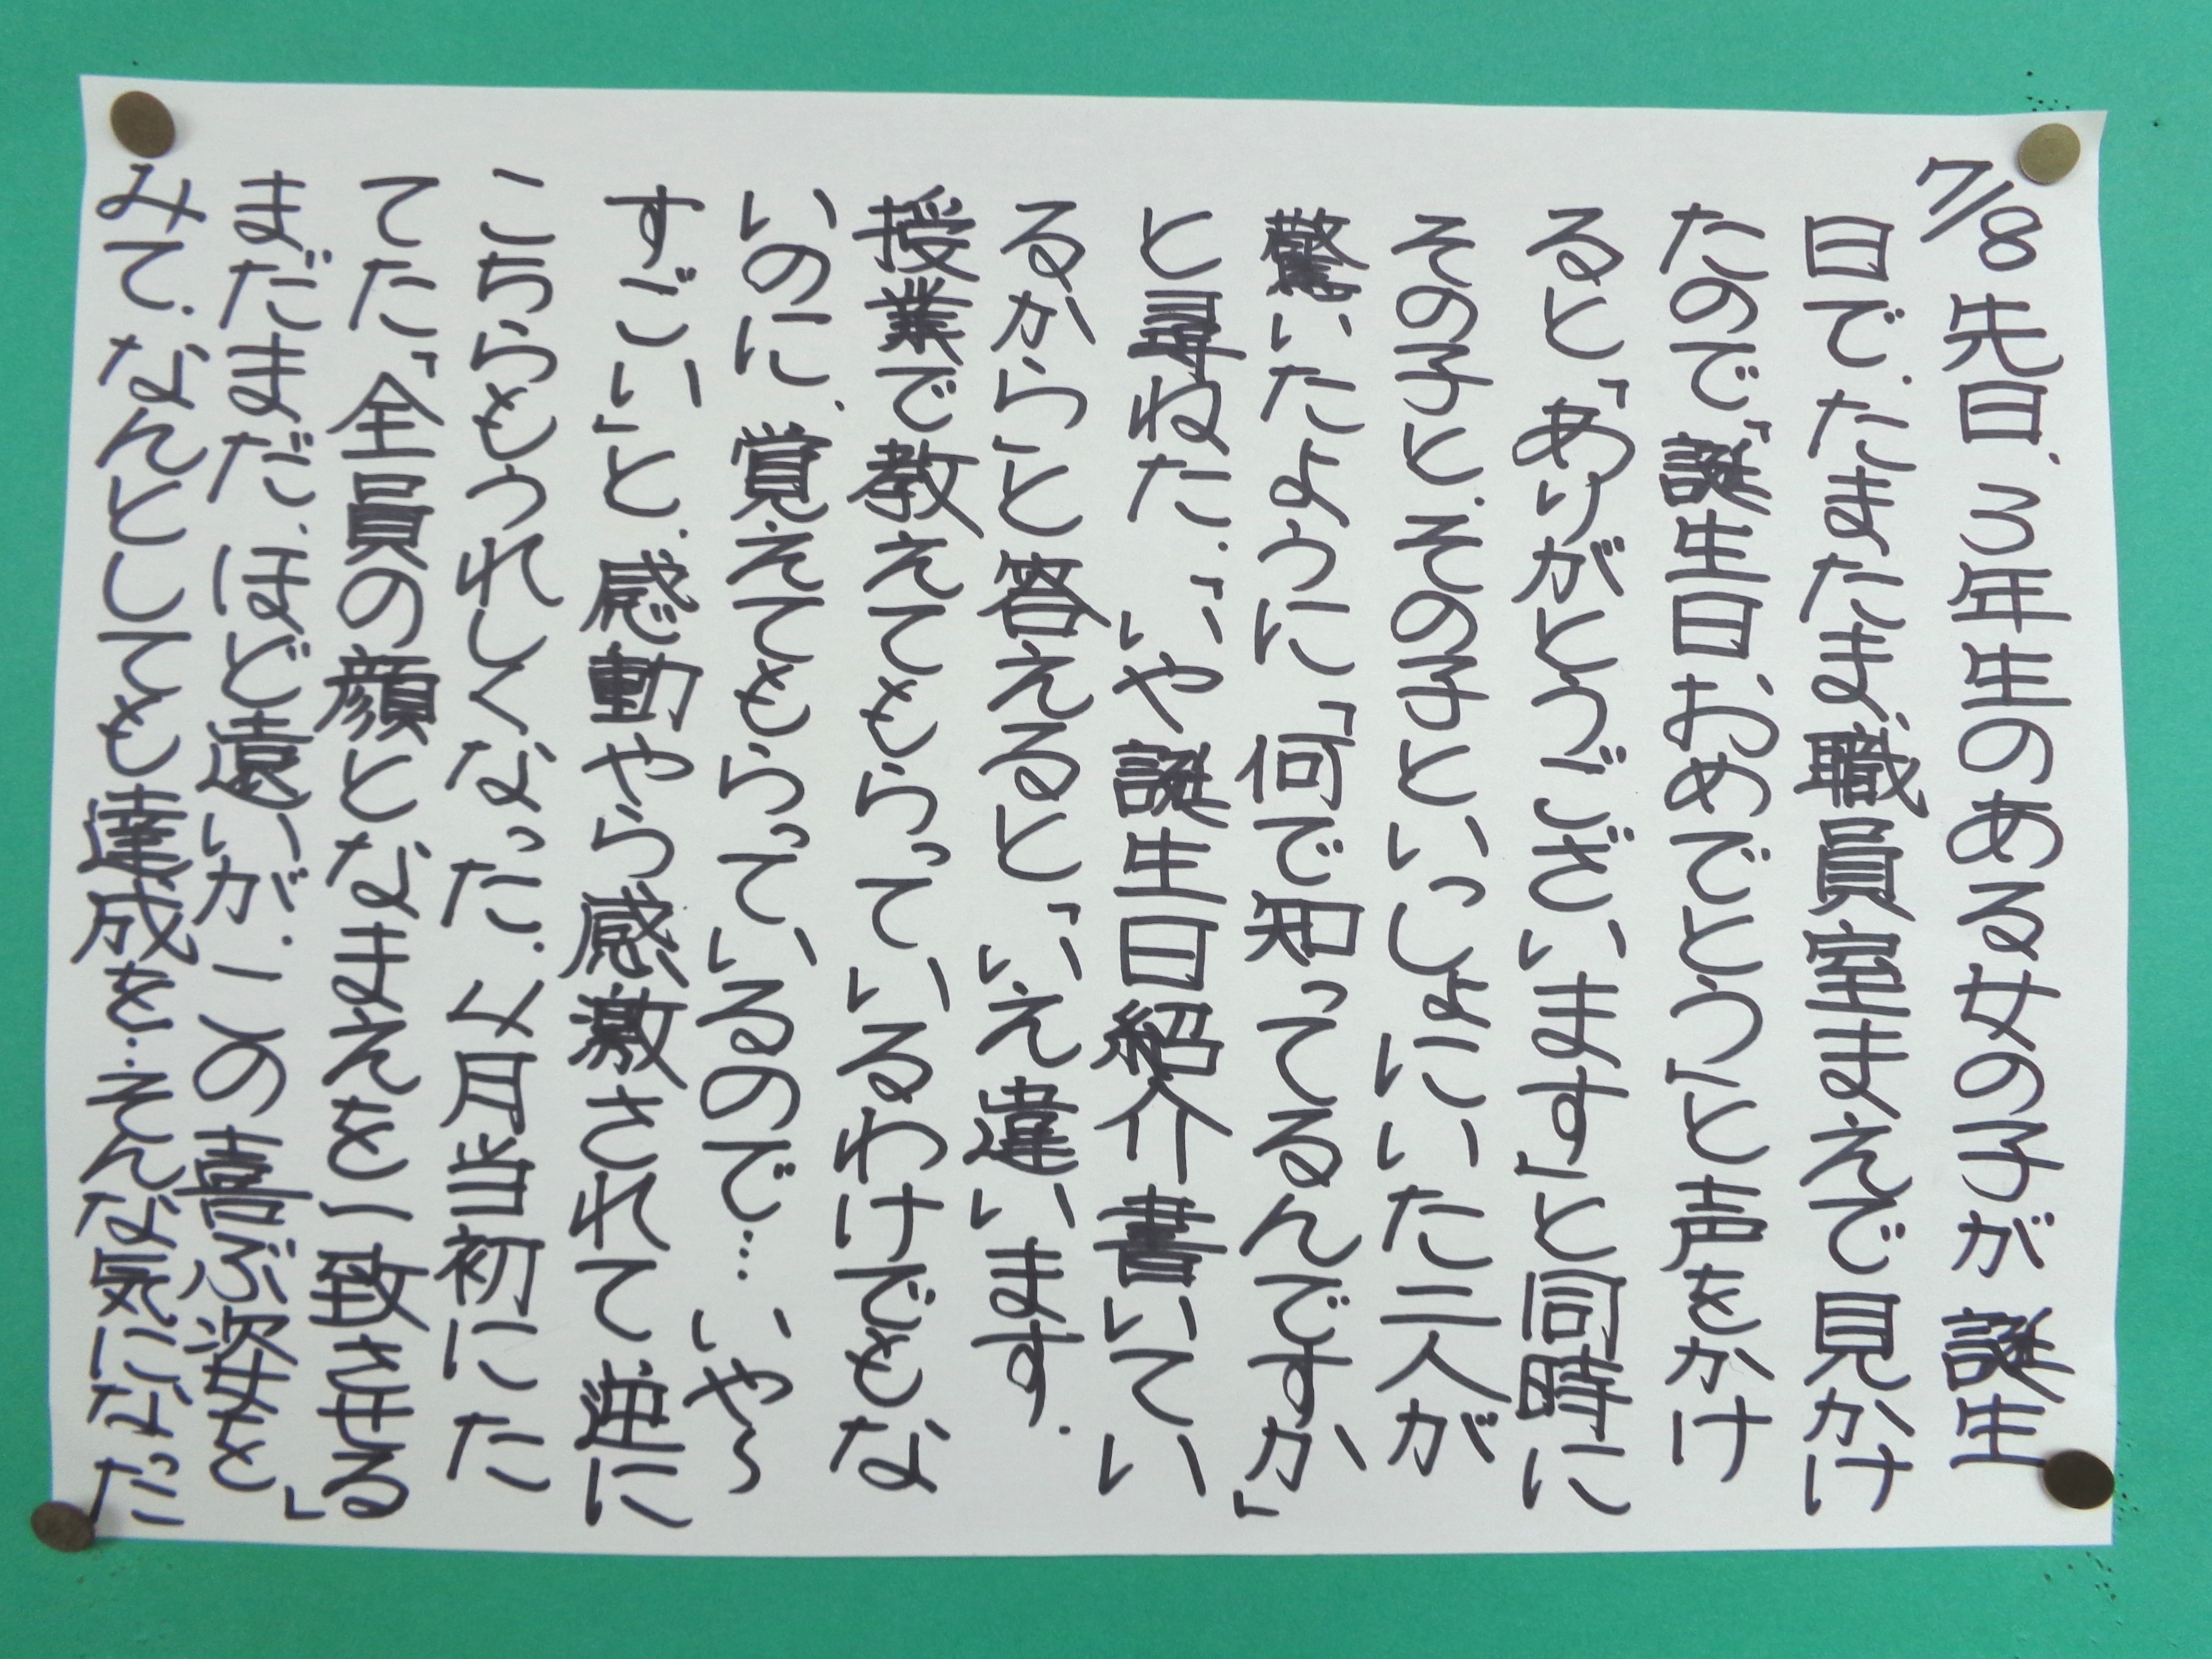 7/8 先日、3年生のある女の子が誕生
日で、たまたま職員室まえで見かけ
たので、「誕生日、おめでとう」と声をかけ
ると、「ありがとうございます」と同時に
その子と、その子といっしょにいた二人が
驚いたように「何で知ってるんですか」
と尋ねた。「いや誕生日紹介書いてい
るから」と答えると、「いえ違います。
授業で教えてもらっているわけでもな
いのに、覚えてもらっているので… いや〜
すごい」と、感動やら感激されて逆に
こちらもうれしくなった。4月当初にた
てた「全員の顔となまえを一致させる」
まだまだ、ほど遠いが、この喜ぶ姿を
みて、なんとしても達成を…そんな気になった